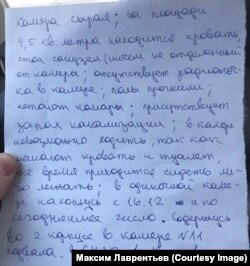 камера сырая; на площади
4,5 кв метра находится кровать,
стол санузел (ничем не отделенный
от камеры; отсутствует радиоточ
ка в камере; полы прогнили;
летают комары; присутствует
запах канализации; в камере
невозможно ходить, так как
мешают кровать и туалет,
все время приходится сидеть ли-
бо лежать; в одиночной каме-
ре нахожусь с 16.12 и по
сегодняшнее число. Содержусь
во 2 корпусе в камере №11
подвала.
Максим Лаврентьев (Courtesy Image)